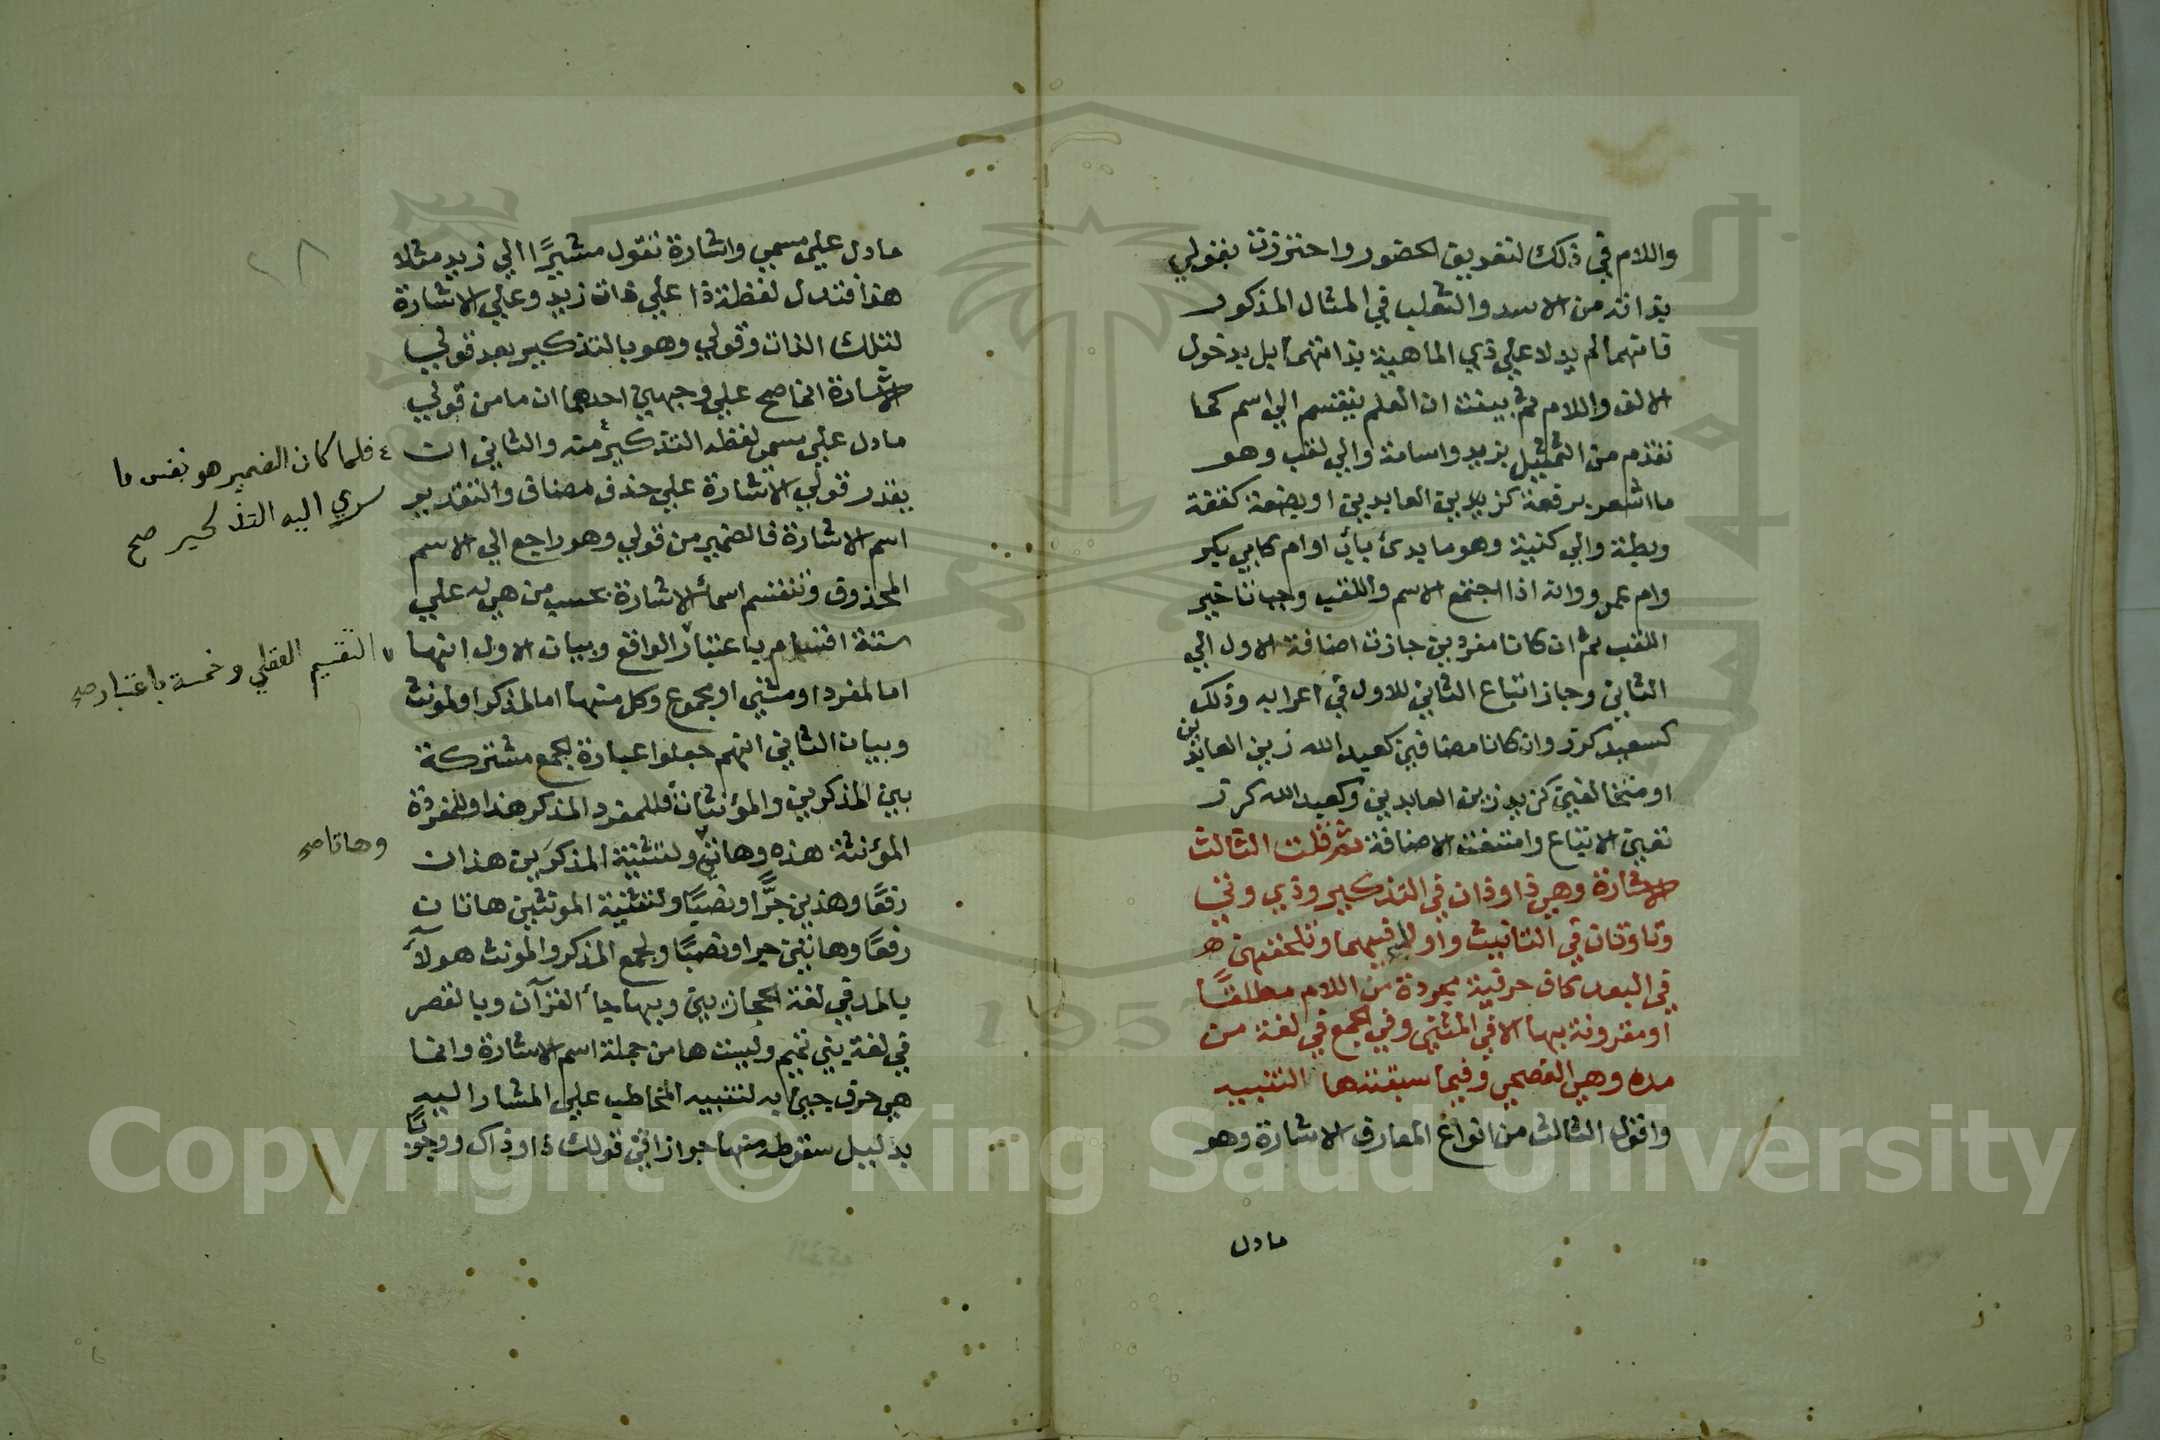 واللام في ذلك لتعريف الحضور واحترزت بقولي
بذاته من الاسد والثعلب في المثال المذكور
فانهما لم يدلا علي ذي الماهية بذاتهما بل بدخول
الالف واللام ثم بينت ان العلم ينقسم الي اسم كما
تقدم من التمثيل بزيد واسامة والي لقب وهو
ما اشعر برفعة كزين العابدين او بضعة كقفة
وبطة والي كنية وهو ما بدئ باب او ام كابي بكر
وام عمرو وانه اذا اجتمع الاسم واللقب وجب تاخير
اللقب ثم ان كانا مفردين جازت اضافة الاول الي
الثاني وجاز اتباع الثاني للاول في اعرابه وذلك
كسعيد كرز وان كانا مضافين كعبد الله زين العابدين
او متخالفين كزيد زين العابدين وكعبد الله كرز
تعين الاتباع وامتنعت الاضافة ثم قلت الثالث
الاشارة وهي ذا وذان في التذكير وذي وتي
وتا وتان في التانيث واولاء فيهما وتلحقهن
في البعد كاف حرفية مجردة من اللام مطلقًا
او مقرونة بها الا في المثني وفي الجمع في لغة من
مده وهي الفصحي وفيما سبقته ها التنبيه
واقول الثالث من انواع المعارف الاشارة وهو
ما دل
٢٨
ما دل علي مسمي واشارة تقول مشيرًا الي زيد مثلا
هذا فتدل لفظة ذا علي ذات زيد وعلي الاشارة
لتلك الذات وقولي وهو بالتذكير بعد قولي
الاشارة انما صح علي وجهين احدهما ان ما من قولي
ما دل علي مسمي لفظه التذكير منه والثاني ان
يقدر قولي الاشارة علي حذف مضاف والتقدير
اسم الاشارة فالضمير من قولي وهو راجع الي الاسم
المحذوف وتنقسم اسماء الاشارة بحسب من هي له علي
ستة اقسام باعتبار الواقع وبيان الاول انها
اما لمفرد او مثني او مجموع وكل منها اما لمذكر او لمونث
وبيان الثاني انهم جعلوا عبارة الجمع مشتركة
بين المذكرين والمؤنثات فللمفرد المذكر هذا وللمفردة
المؤنثة هذه وهاتي ولتثنية المذكرين هذان
رفعًا وهذين جرًّا ونصبًا ولتثنية المونثين هاتان
رفعًا وهاتين جرا ونصبًا ولجمع المذكر والمونث هولاء
بالمد في لغة الحجازيين وبها جاء القرآن وبالقصر
في لغة بني تميم وليست ها من جملة اسم الاشارة وانما
هي حرف جيئ به لتنبيه المخاطب علي المشار اليه
بدليل سقوطه منها جوازا في قولك ذا وذاك ووجوبًا
٤ فلما كان الضمير هو نفس ما
سري اليه التذكير صح
٧ التقسيم العقلي وخمسة باعتبار صح
وهاتا صح
Copyright © King Saud University
1957